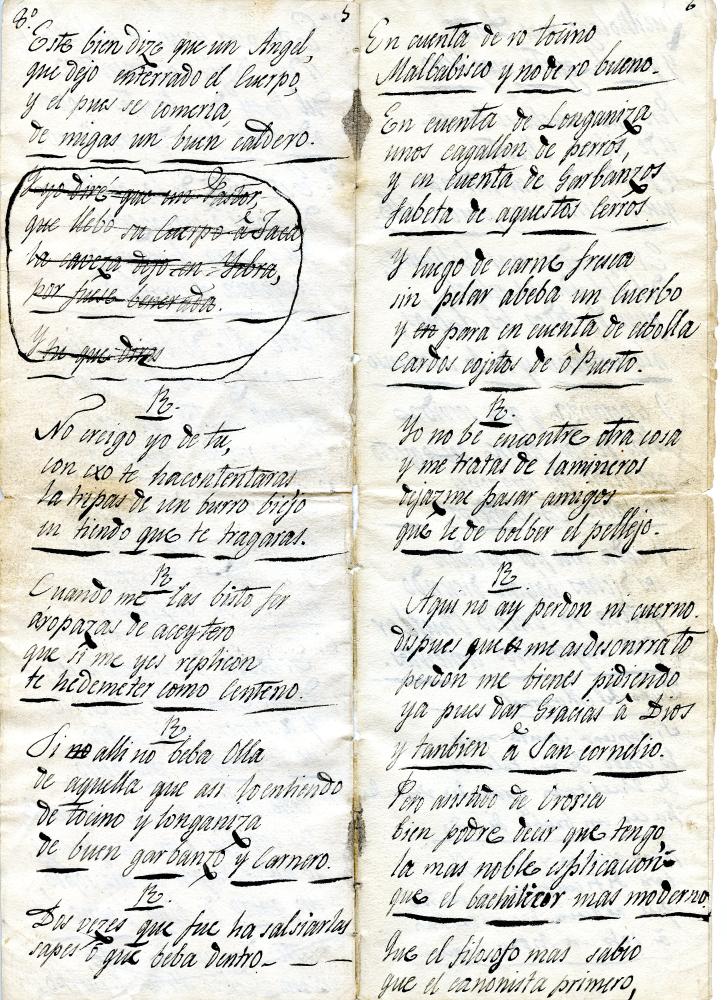 8º 5
Este bien dize que un Angel,
que dejo enterrado el Cuerpo,
y el pues se comeria,
de migas un buen caldero.
Y yo diré que un Pastor,
que llebó su Cuerpo â Jaca
la caveza dejo en Yebra,
por fuese benerada.
Y hi que diros
R.
No creigo yo de tu,
con exo te hacontentaras
la tripas de un burro biejo
in tiendo que te tragaras.
R
Cuando me las bisto fer
âropazas de aceytero
que si me yes replicon
te hedemeter como Centeno.
R
Si no alli no beba Olla
de aquella que asi lo entiendo
de tocino y longaniza
de buen garbanzo y Carnero.
R.
Dos vezes que fue ha salsiarlas
supes ô que beba dentro
6
En cuenta de ro tocino
Malbabisco y no de ro bueno.
En cuenta de Longaniza
unos cagallon de perros,
y en cuenta de Garbanzos
fabeta de aquestos Cerros
Y luego de carne fresca
sin pelar abeba un Cuerbo
y en para en cuenta de cebolla
Cardos cojitos de ô Puerto.
R.
Yo no bé encontre otra cosa
y me tratas de lamineros
dijazme pasar amigos
que le de bolber el pellejo.
R
Aqui no aij perdon ni cuerno.
dispues que me as desonrrato
perdon me bienes pidiendo
ya pues dar Gracias â Dios
y tanbien â San cornelio.
Pero asistido de Orosia
bien podre decir que tengo,
la mas noble esplicacion
que el bachiller mas moderno,
Que el filosofo mas sabio
que el canonista primero,